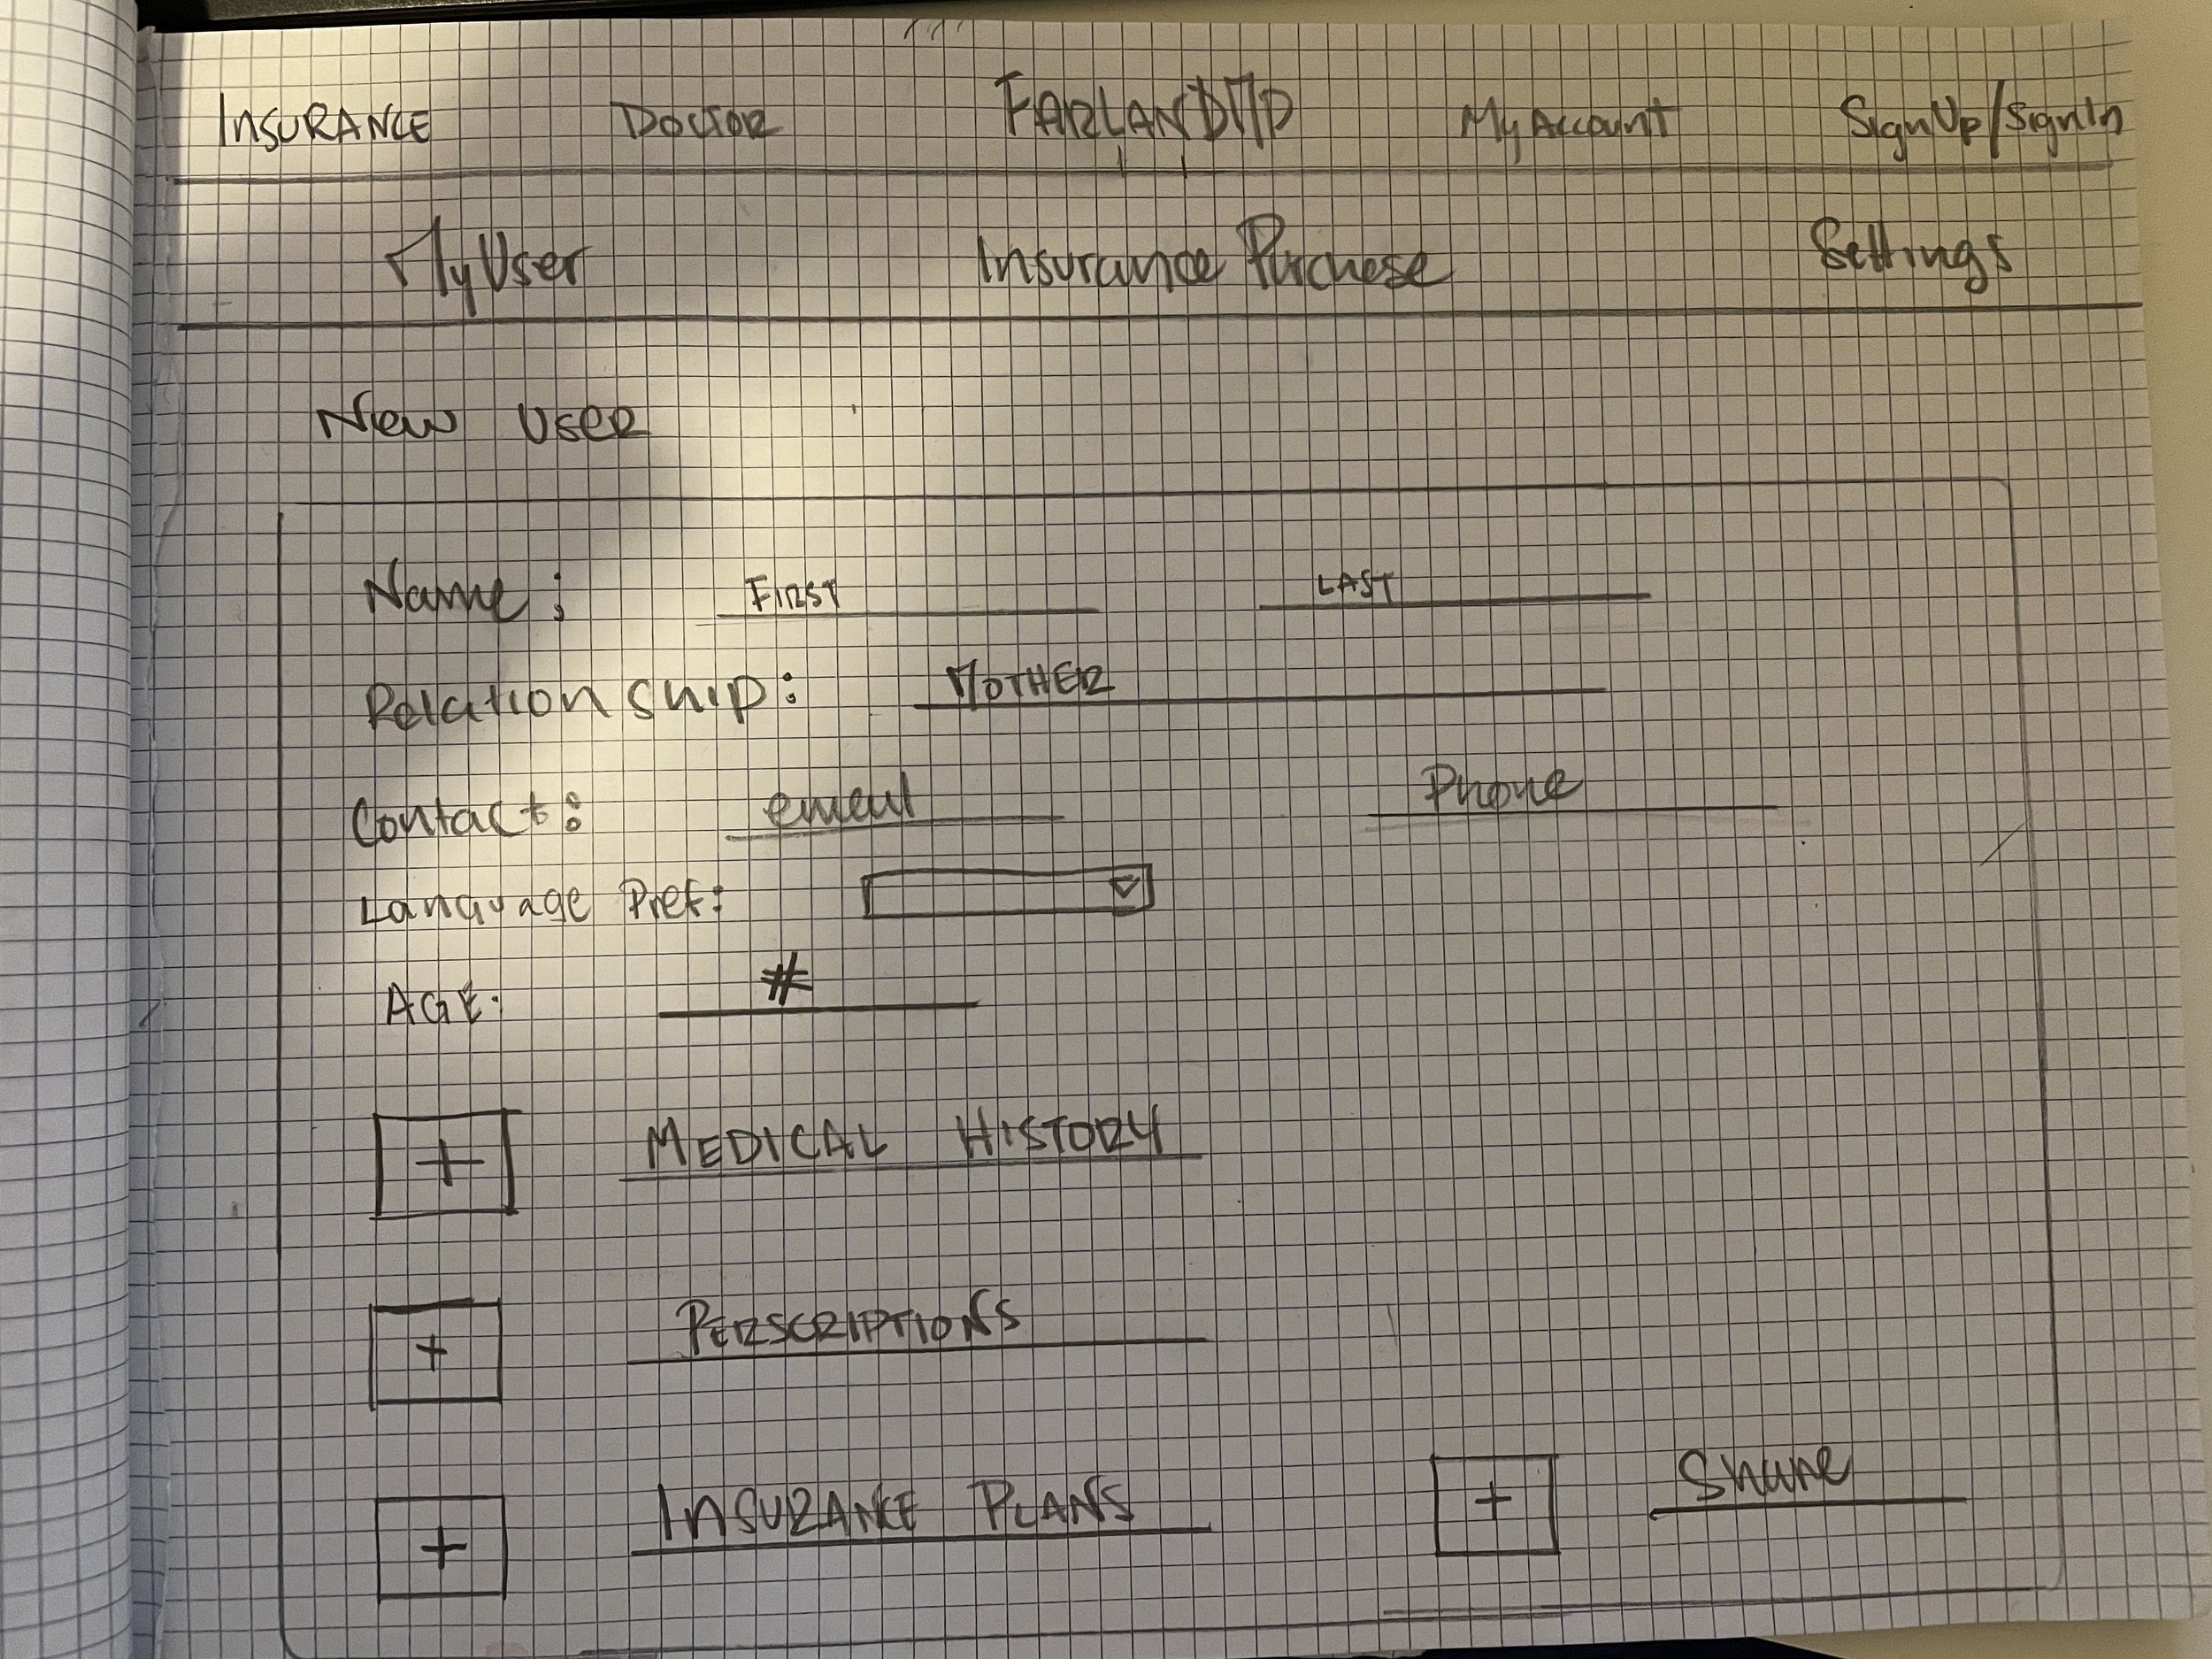 INSURANCE DOCTOR FARLANDMD My Account Sign Up/Sign In
My User Insurance Purchase Settings
New User
Name: FIRST LAST
Relationship: MOTHER
Contact: email Phone
Language Pref:
AGE: #
+ MEDICAL HISTORY
+ PERSCRIPTIONS
+ INSURANCE PLANS + Share